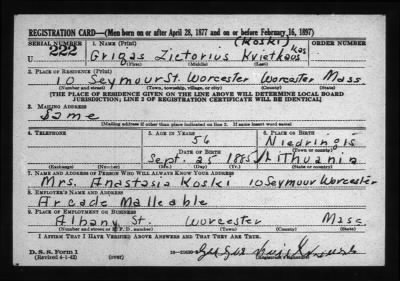 REGISTRATION CARD—(Men born on or after April 28, 1877 and on or before February 16, 1897)
SERIAL NUMBER 1. NAME (Print) (Koski) ORDER NUMBER
U 222 Grigas Zictorius Kvietkaus kas
(First) (Middle) (Last)
2. PLACE OF RESIDENCE (Print)
10 Seymour St. Worcester Worcester Mass
(Number and street) (Town, township, village, or city) (County) (State)
[THE PLACE OF RESIDENCE GIVEN ON THE LINE ABOVE WILL DETERMINE LOCAL BOARD
JURISDICTION; LINE 2 OF REGISTRATION CERTIFICATE WILL BE IDENTICAL]
3. MAILING ADDRESS
Same
[Mailing address if other than place indicated on line 2. If same insert word same]
4. TELEPHONE 5. AGE IN YEARS 6. PLACE OF BIRTH
56 Niedringis
DATE OF BIRTH (Town or county)
Sept. 25 1885 Lithuania
(Exchange) (Number) (Mo.) (Day) (Yr.) (State or country)
7. NAME AND ADDRESS OF PERSON WHO WILL ALWAYS KNOW YOUR ADDRESS
Mrs. Anastasia Koski 10 Seymour Worcester
8. EMPLOYER'S NAME AND ADDRESS
Arcade Malleable
9. PLACE OF EMPLOYMENT OR BUSINESS
Albany St. Worcester Mass.
(Number and street or R. F. D. number) (Town) (County) (State)
I AFFIRM THAT I HAVE VERIFIED ABOVE ANSWERS AND THAT THEY ARE TRUE.
D. S. S. Form 1
(Revised 4-1-42) (over)